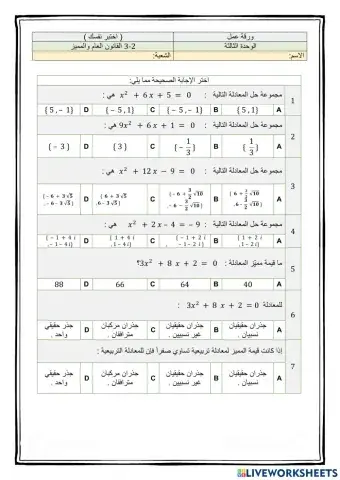 ورقة عمل ( اختبر نفسك )
الوحدة الثالثة 3-2 القانون العام والمميز
الاسم: الشعبة:
اختر الإجابة الصحيحة مما يلي:
1 مجموعة حل المعادلة التالية : x² + 6x + 5 = 0 هي :
A {5,1} B {-5,-1} C {-5,1} D {5,-1}
2 مجموعة حل المعادلة التالية : 9x² + 6x + 1 = 0 هي :
A {1/3} B {-1/3} C {3} D {-3}
3 مجموعة حل المعادلة التالية : x² + 12x - 9 = 0 هي :
A B C D
4 مجموعة حل المعادلة التالية : x² + 2x - 4 = -9 هي :
A B C D
5 ما قيمة مميّز المعادلة : 3x² + 8x + 2 = 0؟
A 40 B 64 C 66 D 88
6 للمعادلة 3x² + 8x + 2 = 0 :
A جذران حقيقيان نسبيان . B جذران حقيقيان غير نسبيين . C جذران مركبان مترافقان . D جذر حقيقي واحد .
7 إذا كانت قيمة المميز لمعادلة تربيعية تساوي صفراً فإن للمعادلة التربيعية :
A جذران حقيقيان نسبيان . B جذران حقيقيان غير نسبيين . C جذران مركبان مترافقان . D جذر حقيقي واحد .
LIVEWORKSHEETS